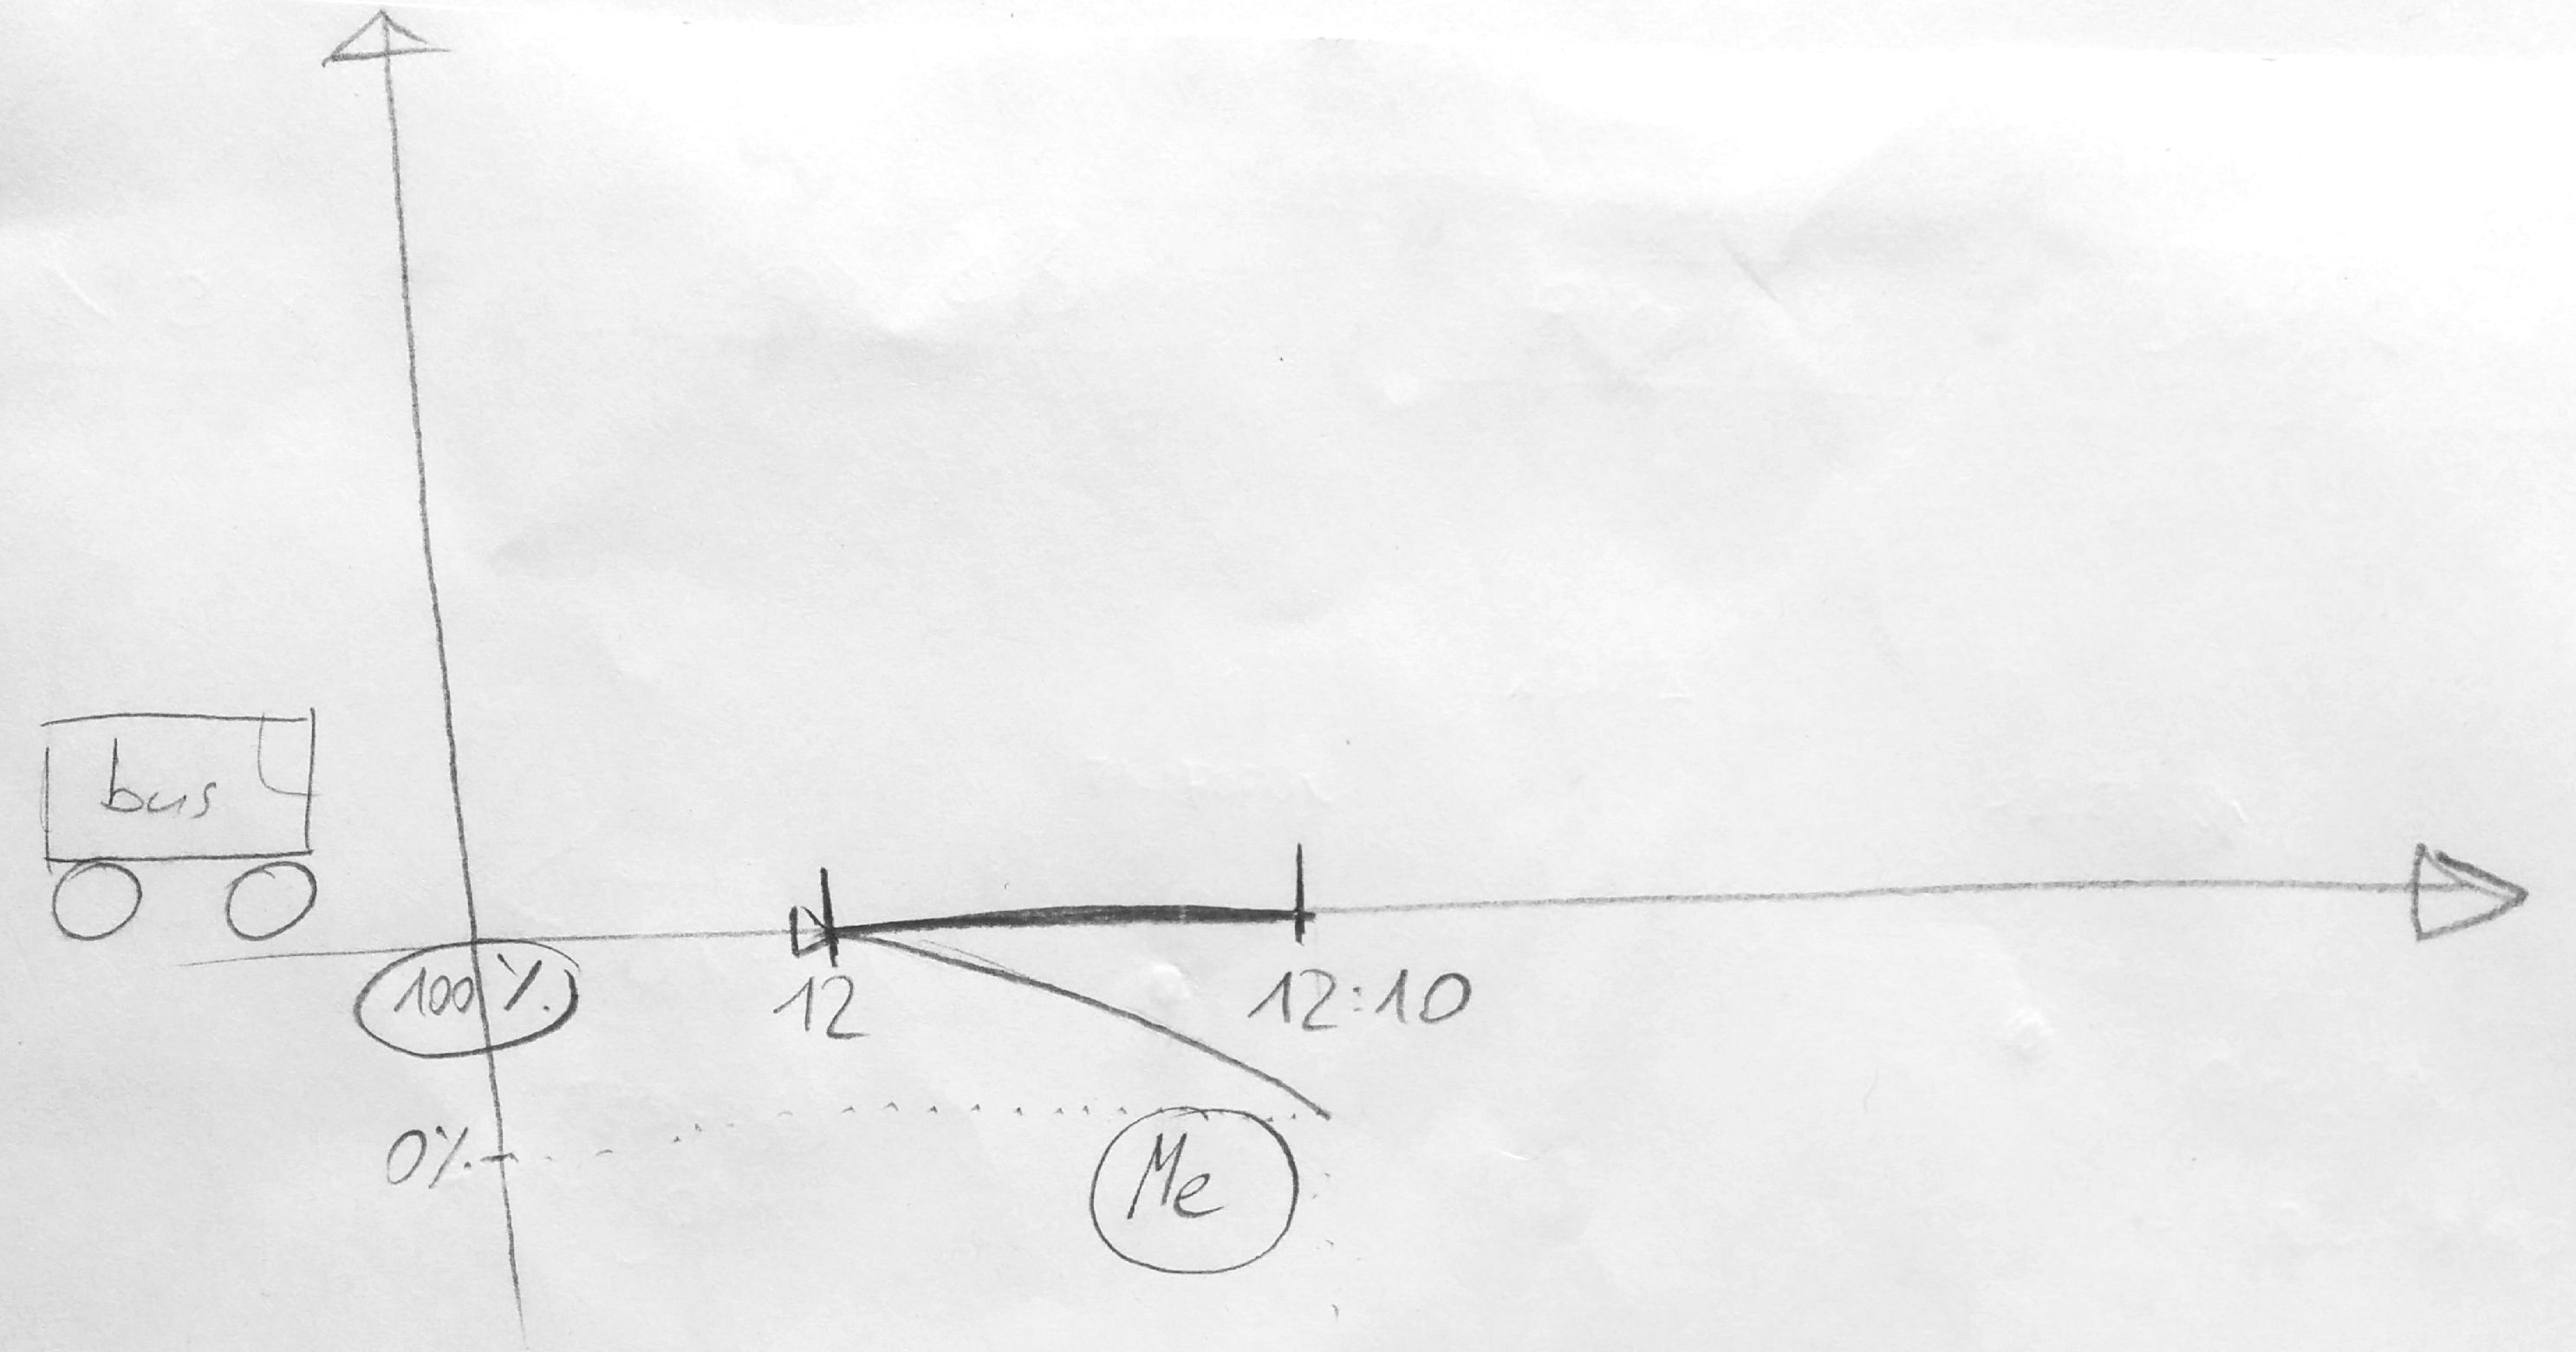 bus
100%
12
12:10
0%
Me